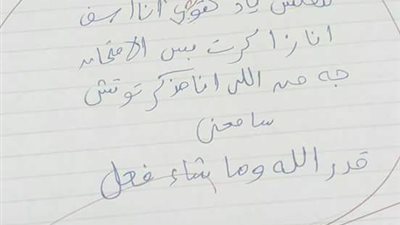 يا دكتور انا اسف
انا زاكرت بس الامتحان
جه من اللى انا مذكرتوتش
سامحنى
قدر الله وما شاء فعل